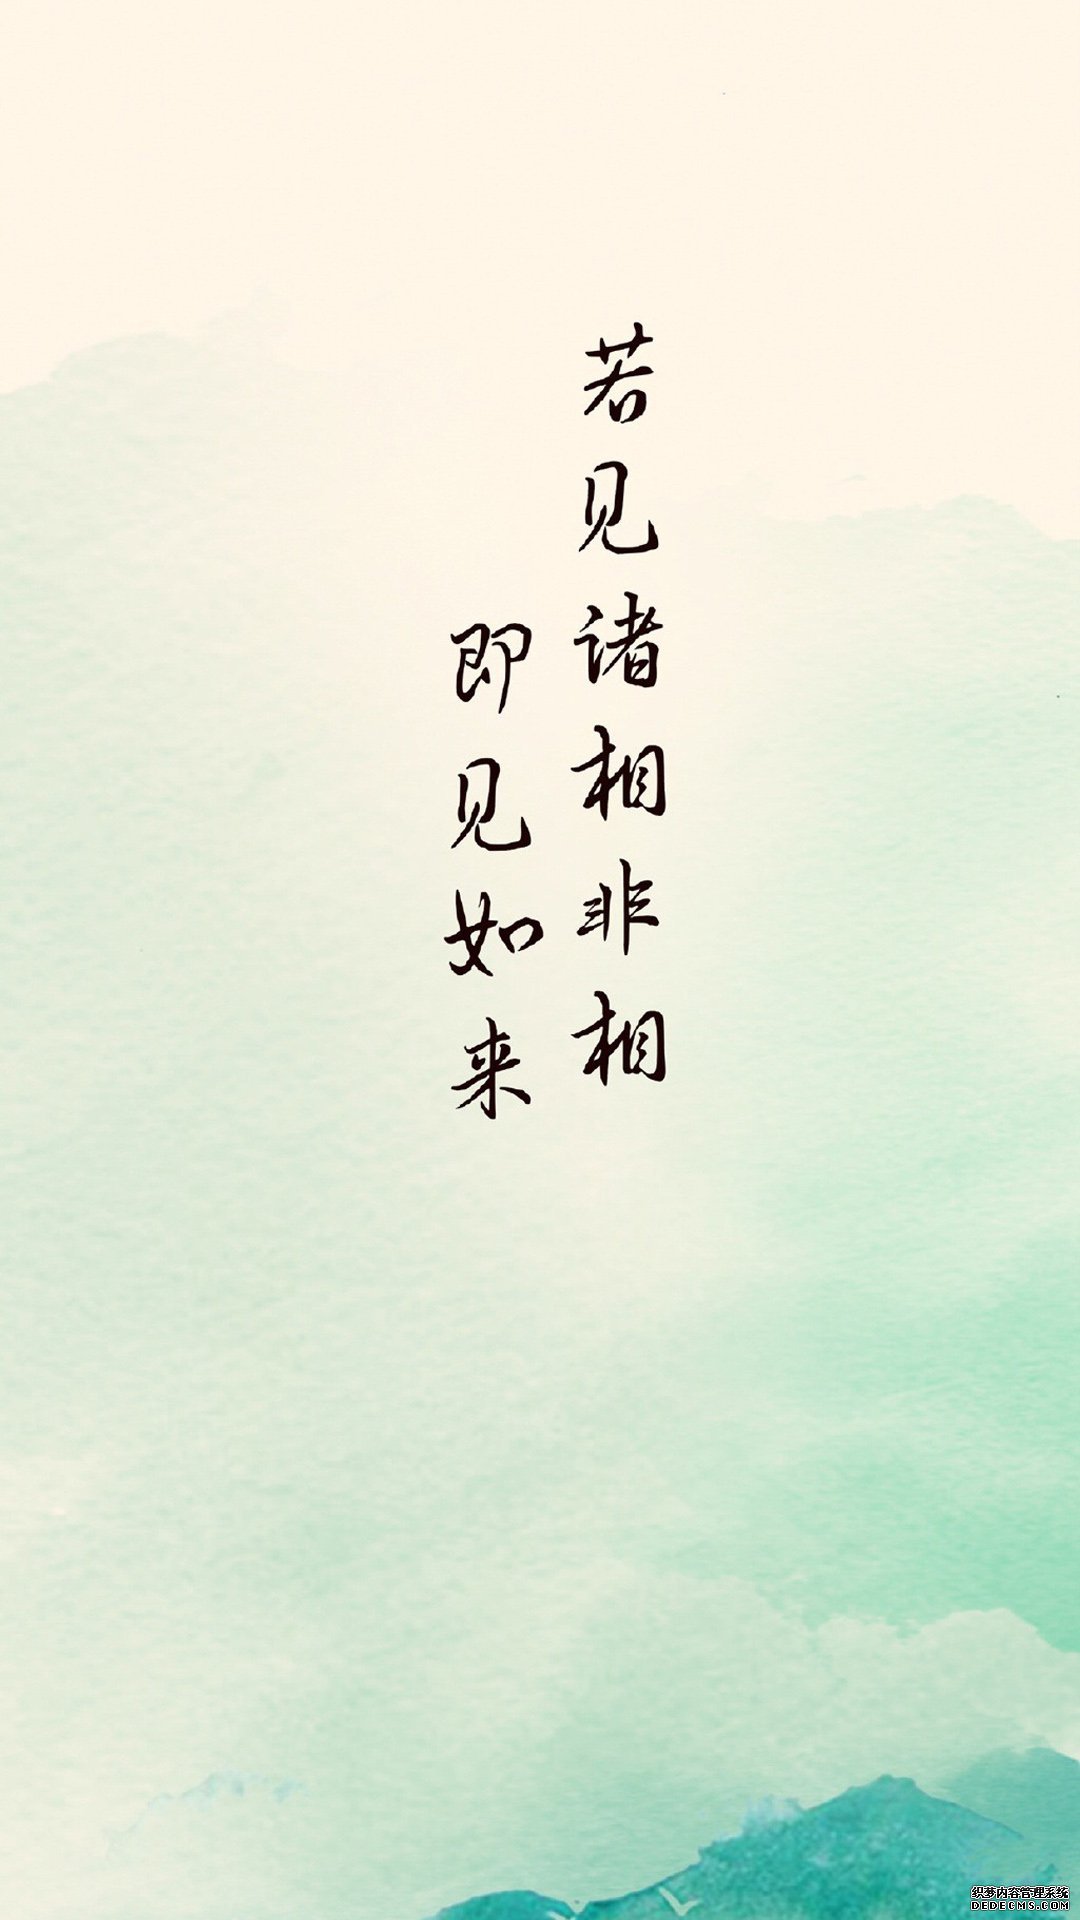 若见诸相非相
即见如来
织梦内容管理系统
DEDECMS.COM